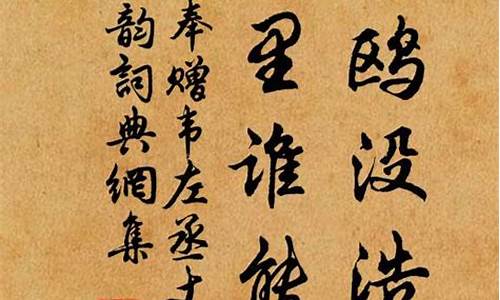 鸥没浩
里谁能
奉赠韦左丞丈
韵詞典網集